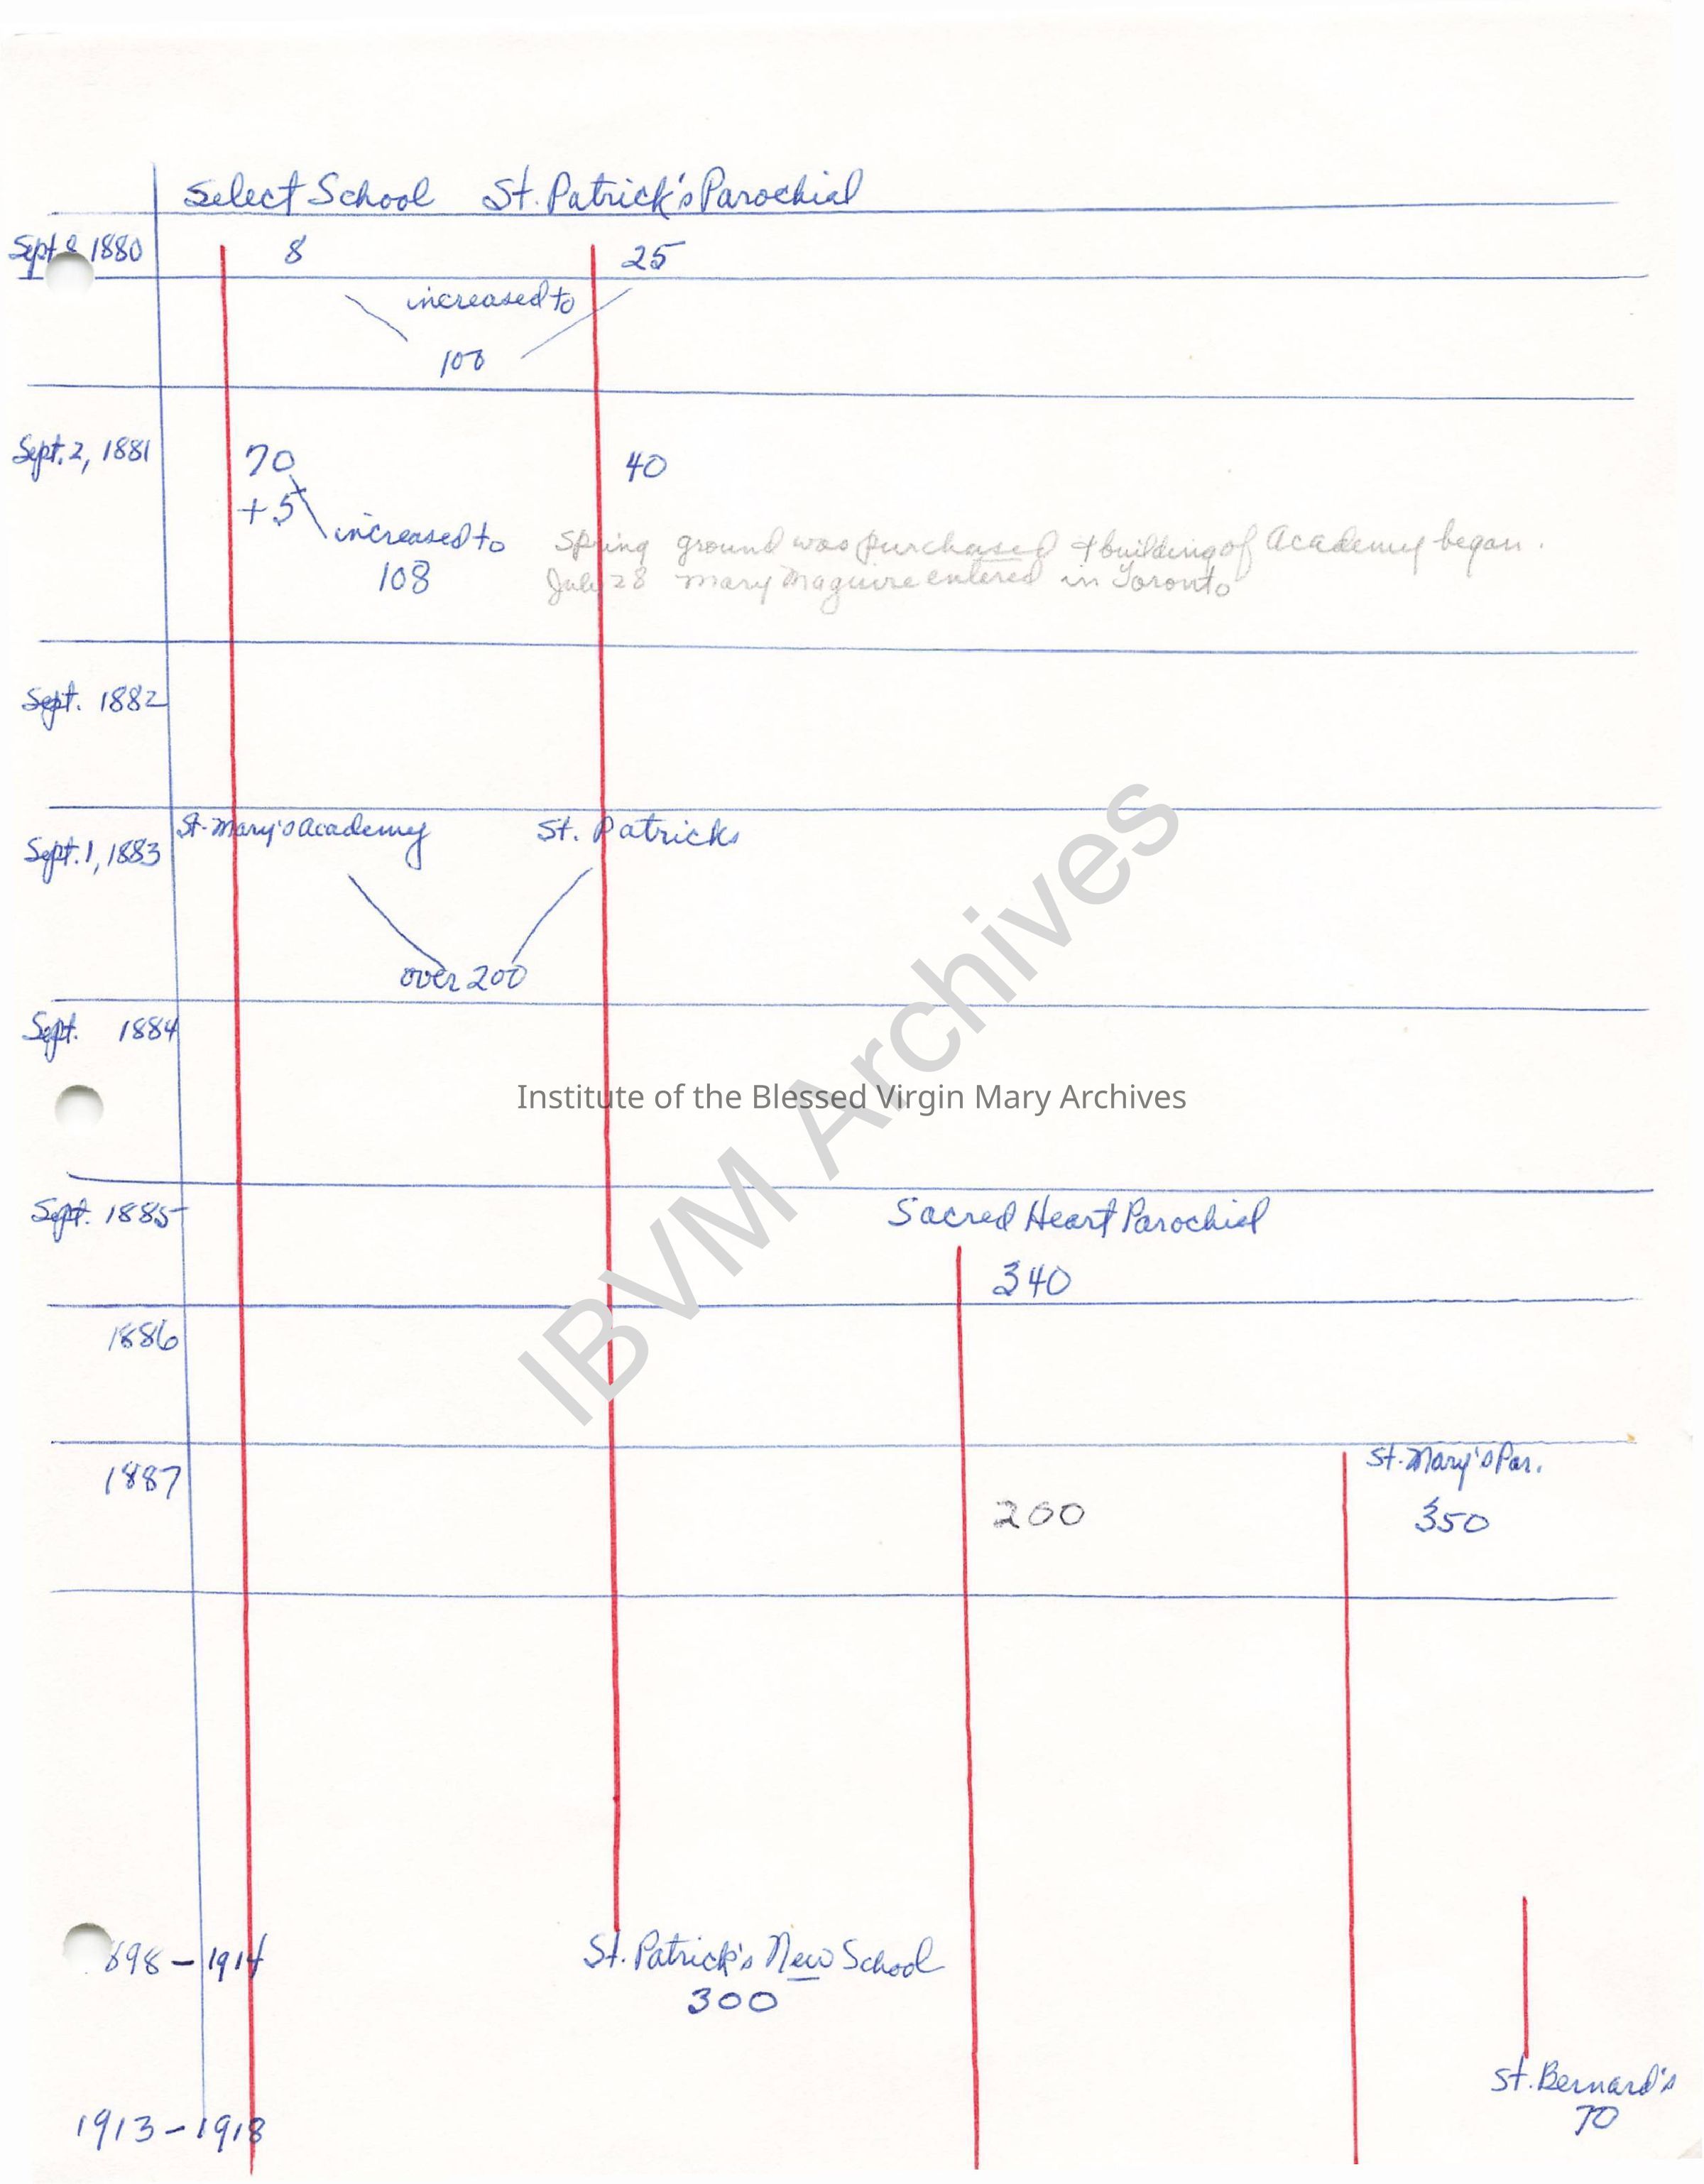 Select School St. Patrick's Parochial
Sept 8 1880 8 25
increased to
100
Sept. 2, 1881 70 40
+5
increased to
108
Spring ground was purchased & building of Academy began.
July 28 Mary Maguire entered in Toronto
Sept. 1882
St. Mary's Academy St. Patricks
Sept. 1, 1883
over 200
Sept. 1884
Institute of the Blessed Virgin Mary Archives
IBVM Archives
Sept. 1885 Sacred Heart Parochial
340
1886
St. Mary's Par.
1887
200 350
898 - 1914 St. Patrick's New School
300
St. Bernard's
1913 - 1918 70